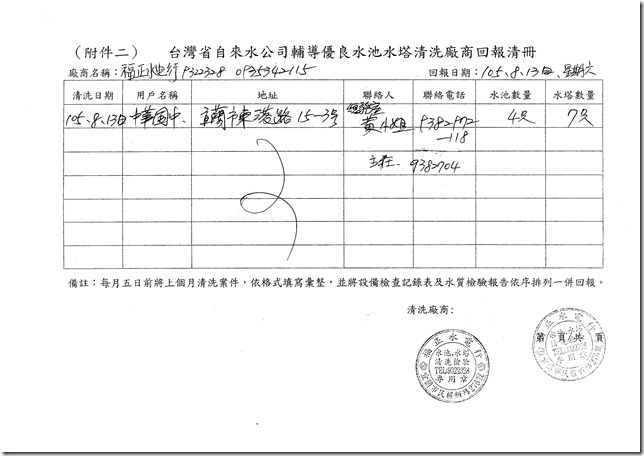 （附件二）　台灣省自來水公司輔導優良水池水塔清洗廠商回報清冊
廠商名稱：福正水电行 9322328 0935342115　回報日期：105、8、13日、星期六
清洗日期　用戶名稱　地址　聯絡人　聯絡電話　水池數量　水塔數量
105、8、13日　中華國中　宜蘭市東港路15-3號　總務室　黃小姐　9382972　4只　7只
-118
主任　9382704
備註：每月五日前將上個月清洗案件，依格式填寫彙整，並將設備檢查記錄表及水質檢驗報告依序排列一併回報。
清洗廠商：
第　頁/共　頁
福正水電行
水池.水塔
清洗檢驗
TEL:9322328
專用章